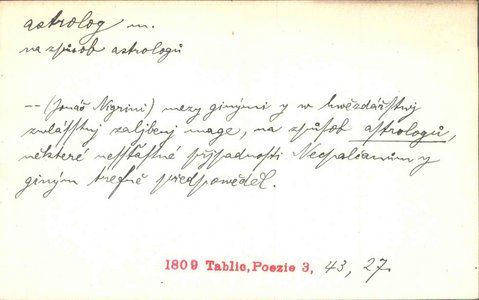 astrolog m.
na způsob astrologů
-- (Jonáš Nigrini) mezy ginými y w hwězdářstwj
zwlásstnj zaljbenj mage, na způsob astrologů,
některé nessťastné přjpadnosti Neapolčanům y
giným trefně předpowěděl.
1809 Tablic, Poezie 3, 43, 27.